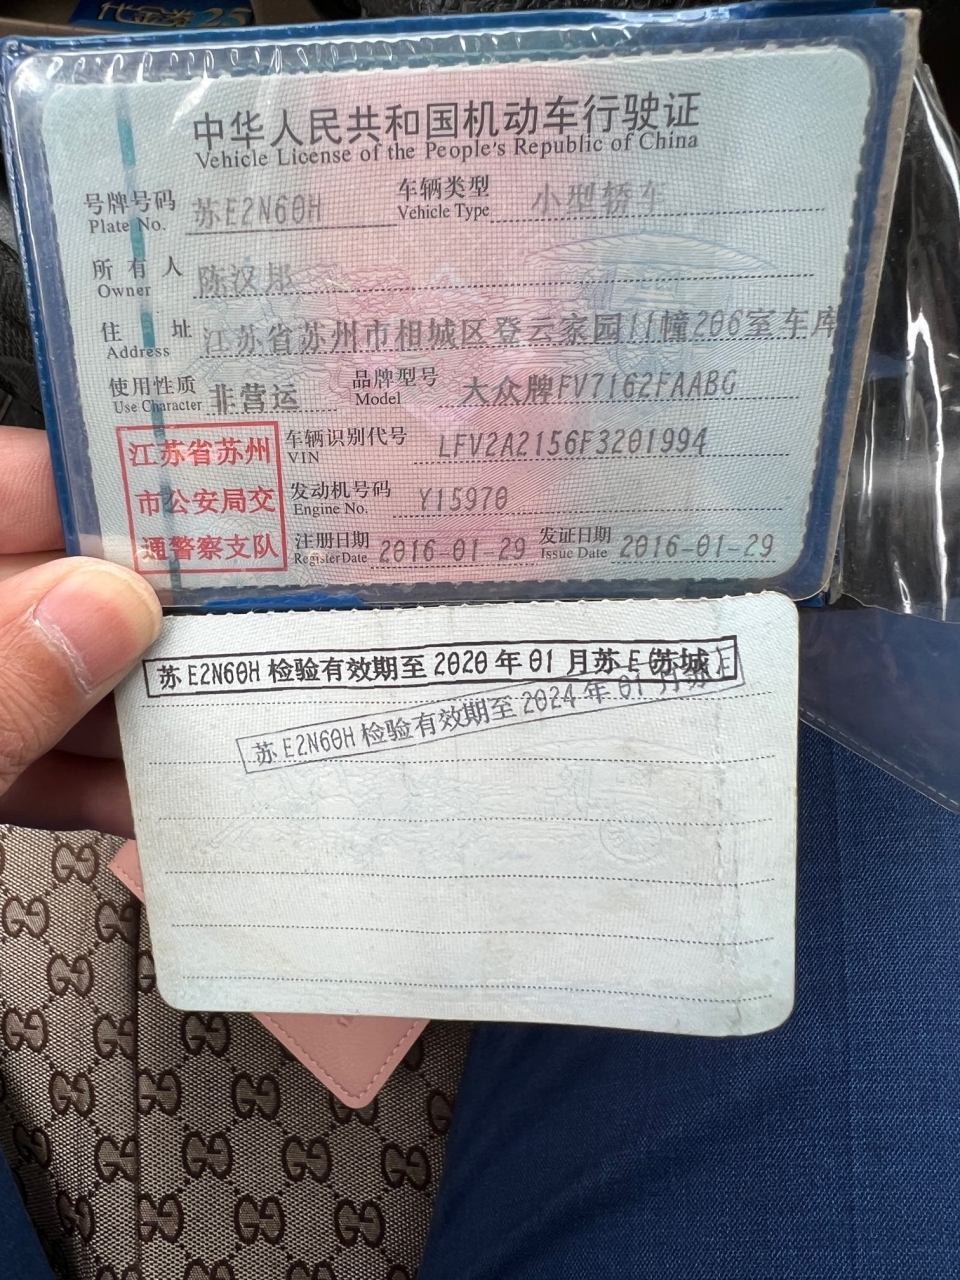 代金券25
中华人民共和国机动车行驶证
Vehicle License of the People's Republic of China
号牌号码 苏E2N60H 车辆类型 小型轿车
Plate No. Vehicle Type
所有人 陈汉邦
Owner
住址 江苏省苏州市相城区登云家园11幢206室车库
Address
使用性质 非营运 品牌型号 大众牌FV7162FAABG
Use Character Model
江苏省苏州 车辆识别代号 LFV2A2156F3201994
VIN
市公安局交 发动机号码 Y15970
Engine No.
通警察支队 注册日期 2016-01-29 发证日期 2016-01-29
Register Date Issue Date
苏E2N60H 检验有效期至 2020 年 01 月苏E
苏E2N60H 检验有效期至 2024 年 01 月苏E